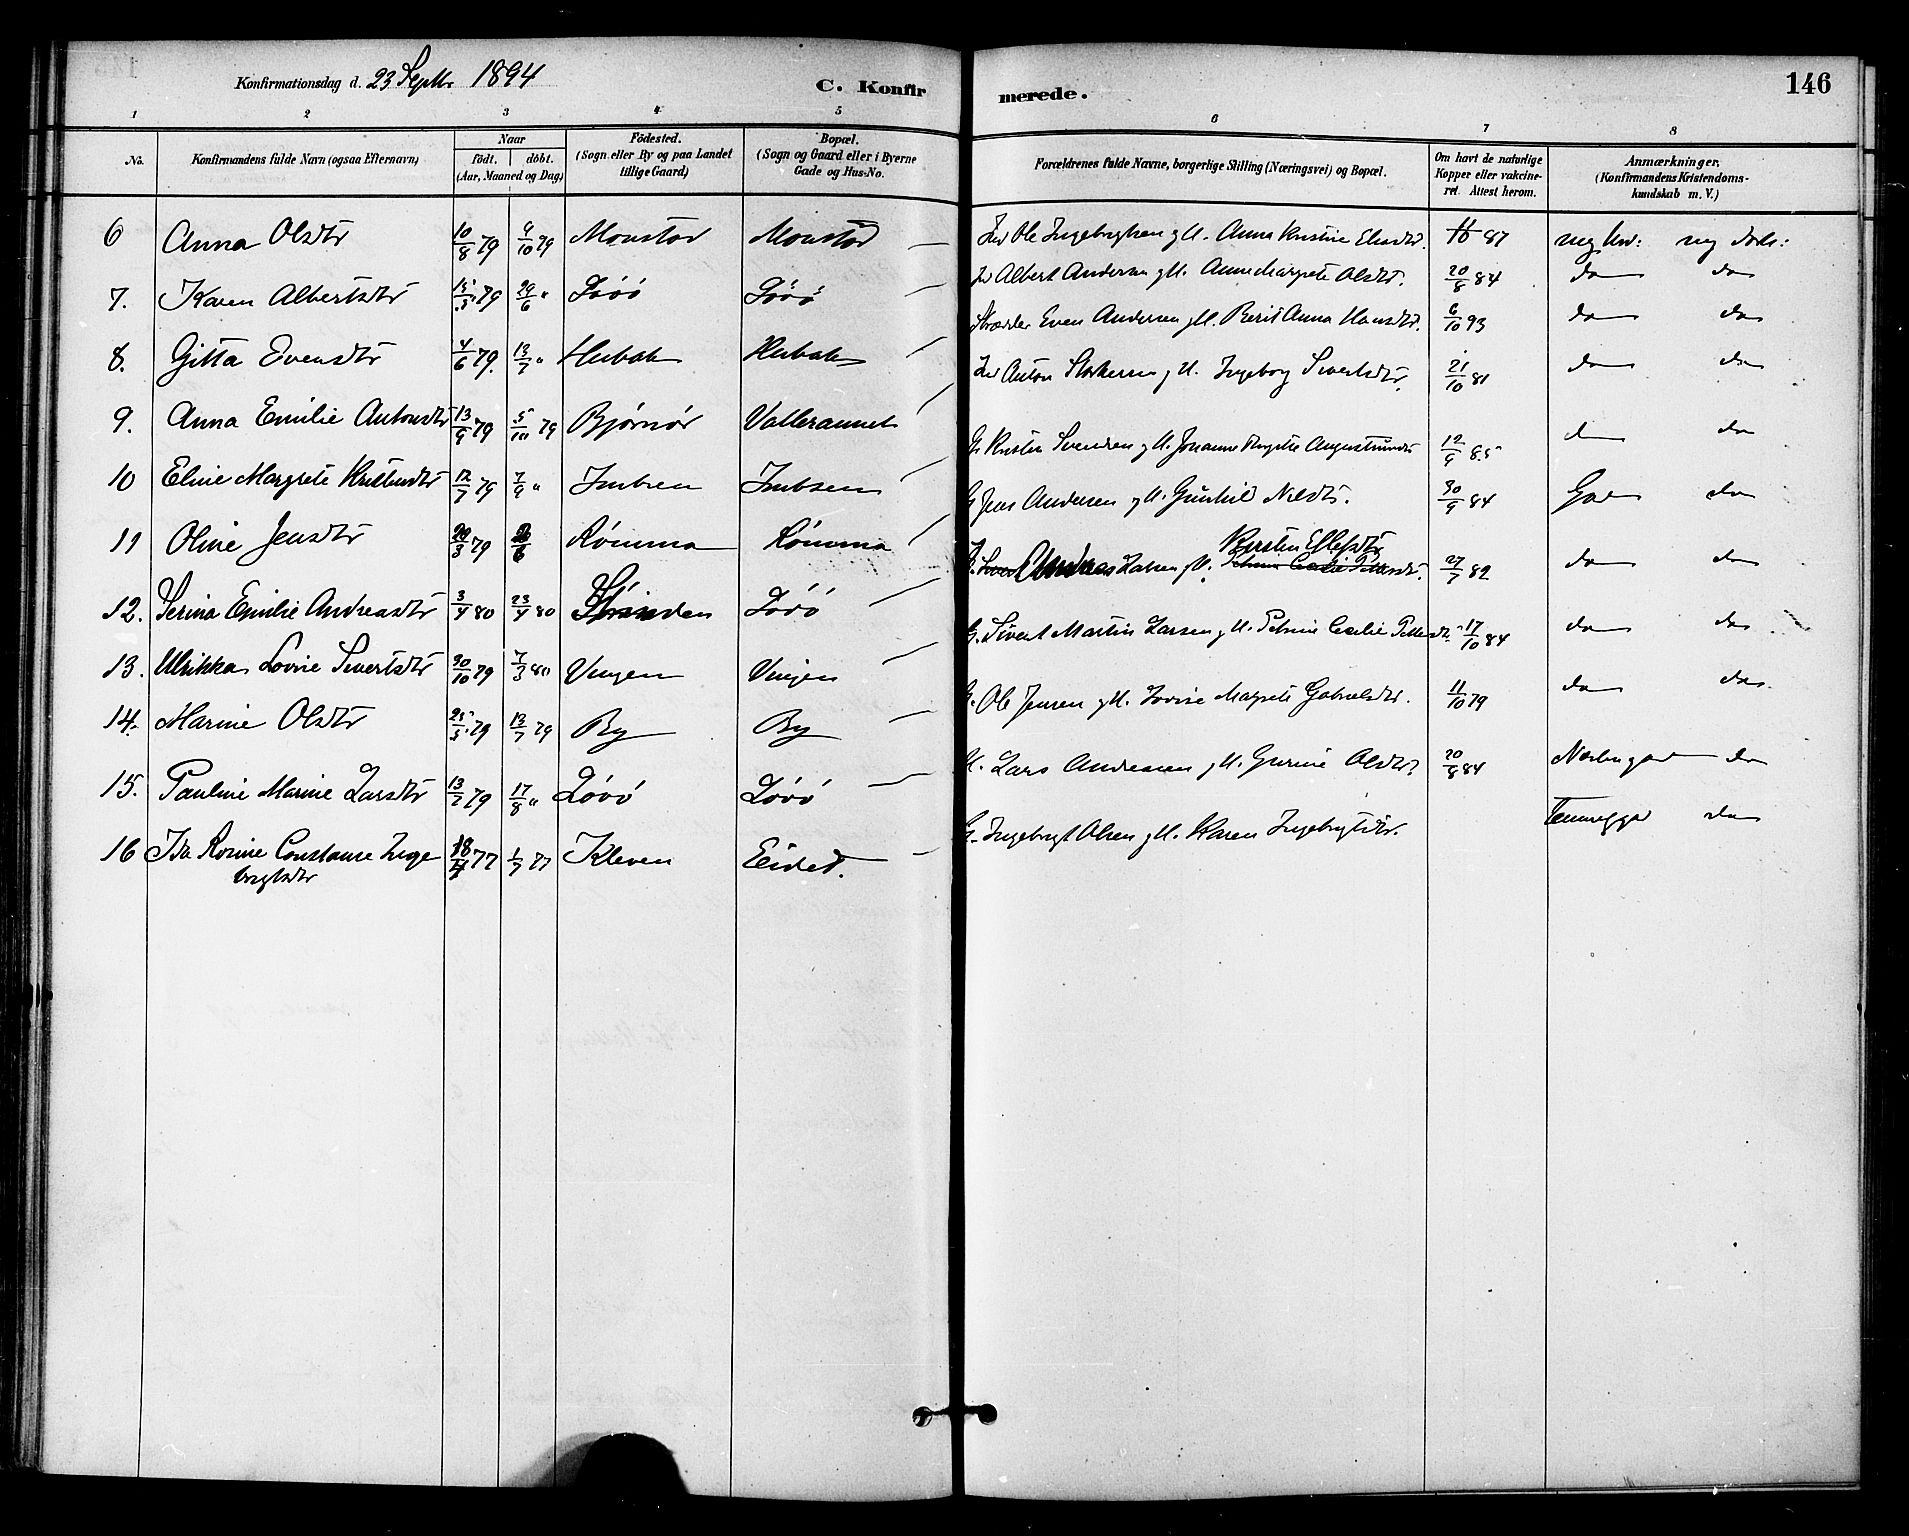 Konfirmationsdag d. 23 Septbr 1894
C. Konfirmerede.
146
1 2 3 4 5 6 7 8
No.
Konfirmandens fulde Navn (ogsaa Efternavn)
Naar
födt. döbt.
(Aar, Maaned og Dag)
Födested.
(Sogn eller By og paa Landet tillige Gaard)
Bopæl.
(Sogn og Gaard eller i Byerne Gade og Hus-No.
Forældrenes fulde Navne, borgerlige Stilling (Næringsvei) og Bopæl.
Om havt de naturlige Kopper eller vakcineret. Attest herom.
Anmærkninger.
(Konfirmandens Kristendomskundskab m. V.)
6 Anna Olsdtr 10/8 79 9/10 79 Monstad Monstad Ole Ingebrigtsen g H. Anna Kristine Elisdtr. 87
7. Karen Albertsdtr 15/5 79 29/6 " Lövö Lövö Albert Andersen g H. Anne Margrete Olsdtr. 20/8 84 do do
8. Gitta Evensdtr 4/6 79. 13/7 " Hubak Hubak Skrædder Even Andersen g H. Berit Anna Hansdtr. 6/10 93 do do
9. Anna Emilie Antonsdtr 13/9 79 5/10 79 Bjørnør Vallersundet Anton Ingeborg Sivertsdtr. 21/10 81 do do
10 Eline Margrete Kristensdtr 12/7 79 7/9 " Imbsen Imbsen G. Kristen Svendsen g H. Johanne Augustinusdtr 12/9 85 do do
11 Oline Jensdtr 3 79 6 Rømma Rømma G. Jens Andersen g H. Gunhild Nilsdtr. 30/9 84 God do
12. Serina Emilie Andreasdtr 3/4 80 23/4 80 Strinden Lövö Andreas Larsen g H. Kirsten Ellefsdtr Petrine Cecilie Pettersdtr. 27/7 82 do do
13. Ulrikka Lovise Sivertsdtr 30/10 79 7/3 80 Vingen Vingen G. Sivert Martin Larsen g H. Petrine Cecilie Pettersdtr. 17/10 84 do do
14. Marine Olsdtr 25/5 79 13/7 79 By By G. Ole Jensen g H. Lovise Margrete Gabrielsdtr. 11/10 79 do do
15. Pauline Marine Larsdtr 13/7 79 17/8 " Lövö Lövö H. Lars Andresen g H. Gurine Olsdtr. 20/8 84 do
16 Ida Rosine Constanse Ingebrigtsdtr 77 1/7 77 Kleven Eidet. G. Ingebrigt Olsen g H. Karen Ingebrigtsdtr. do